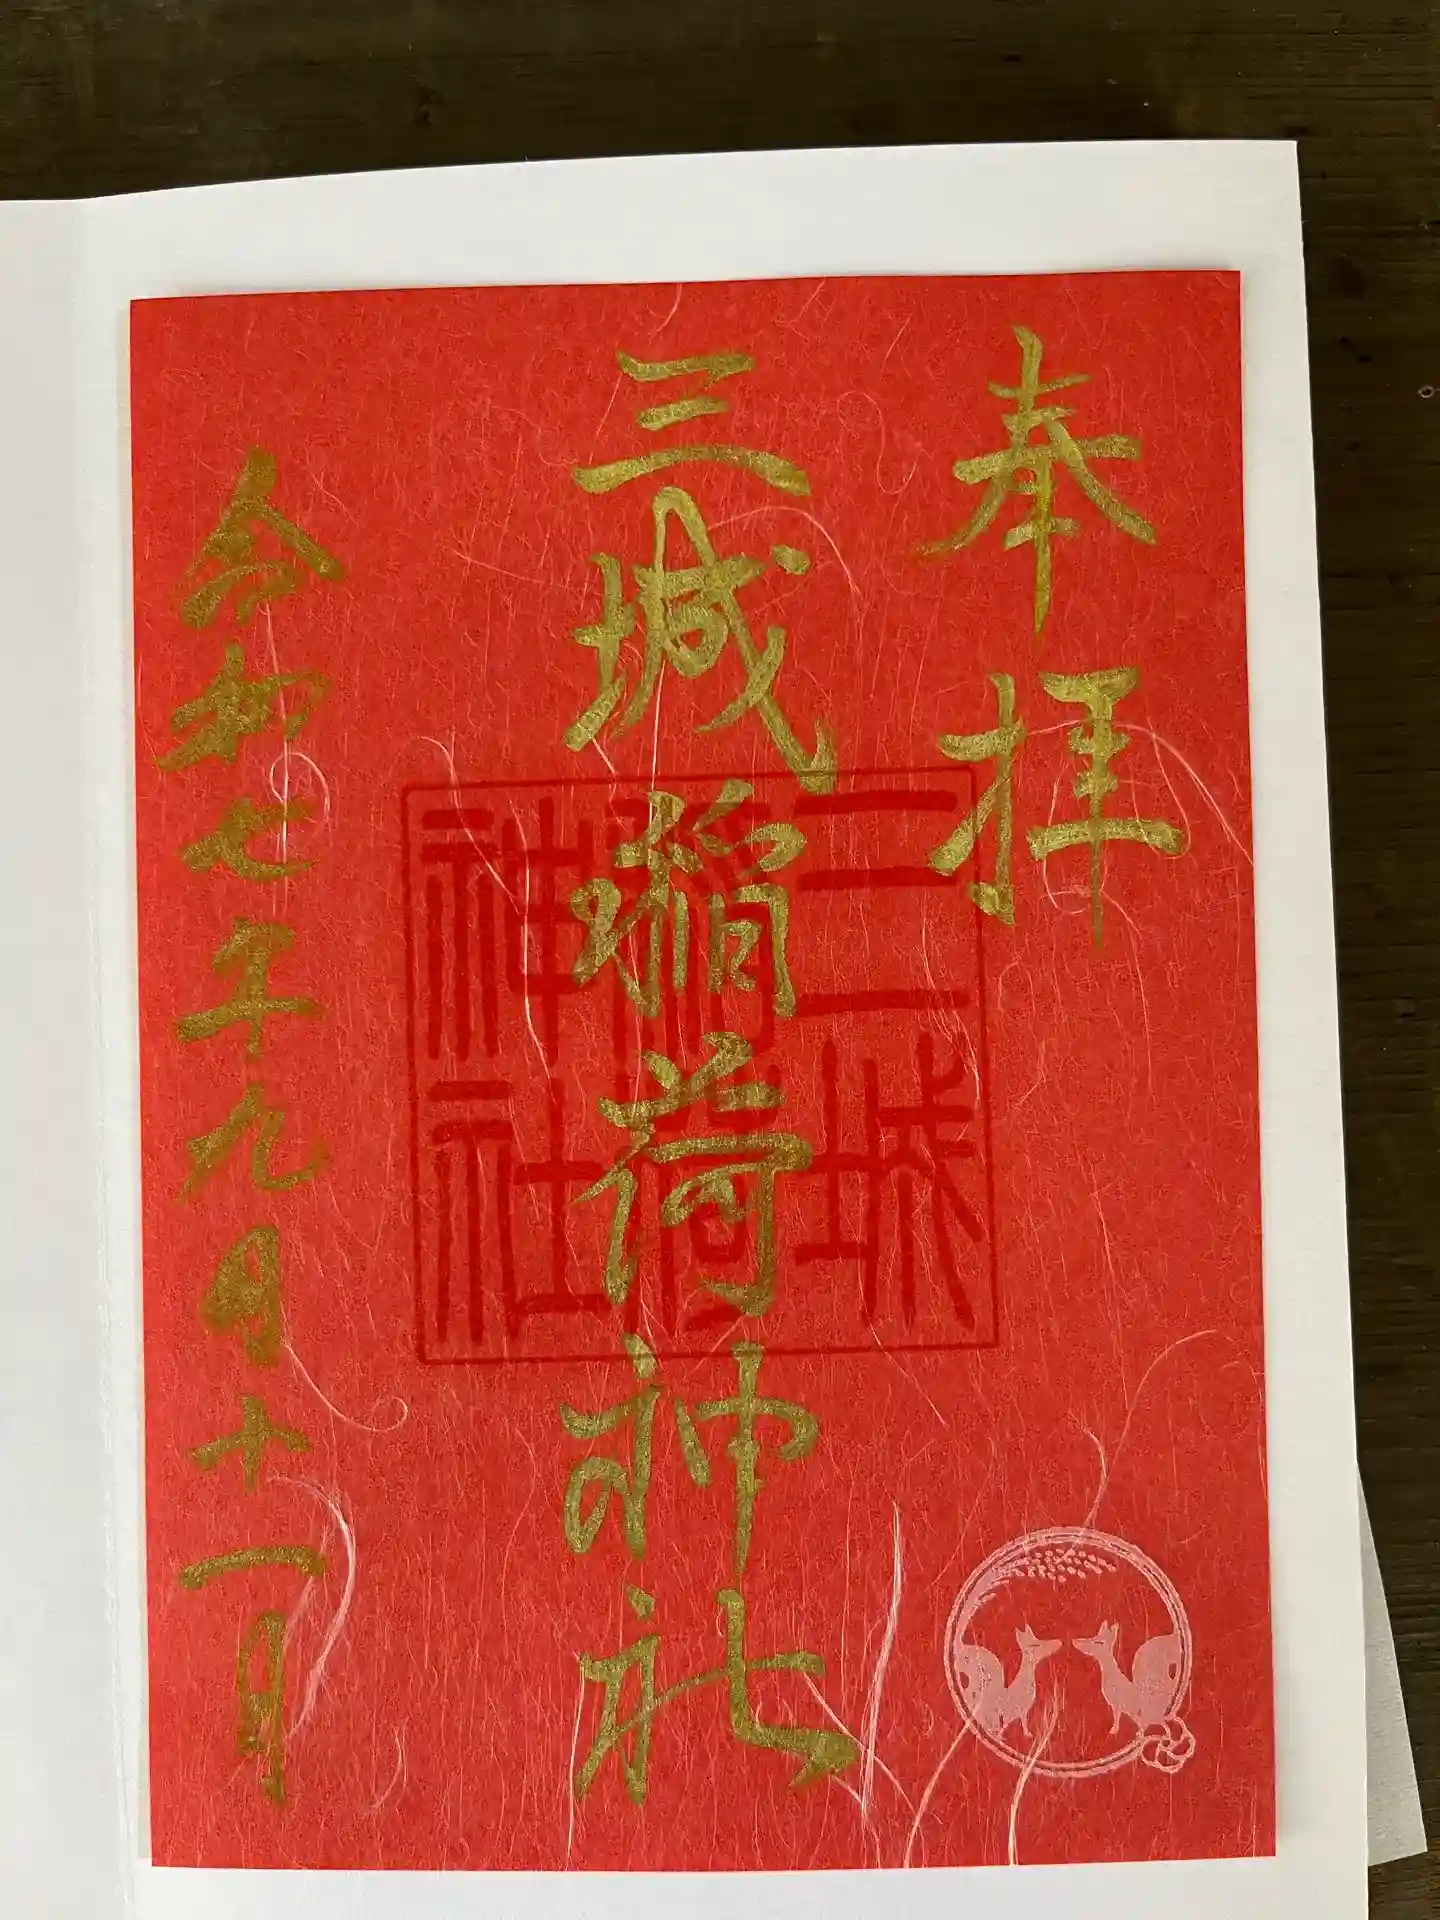 奉拝
三城稲荷神社
三城
稲荷
神社
令和七年九月十一日